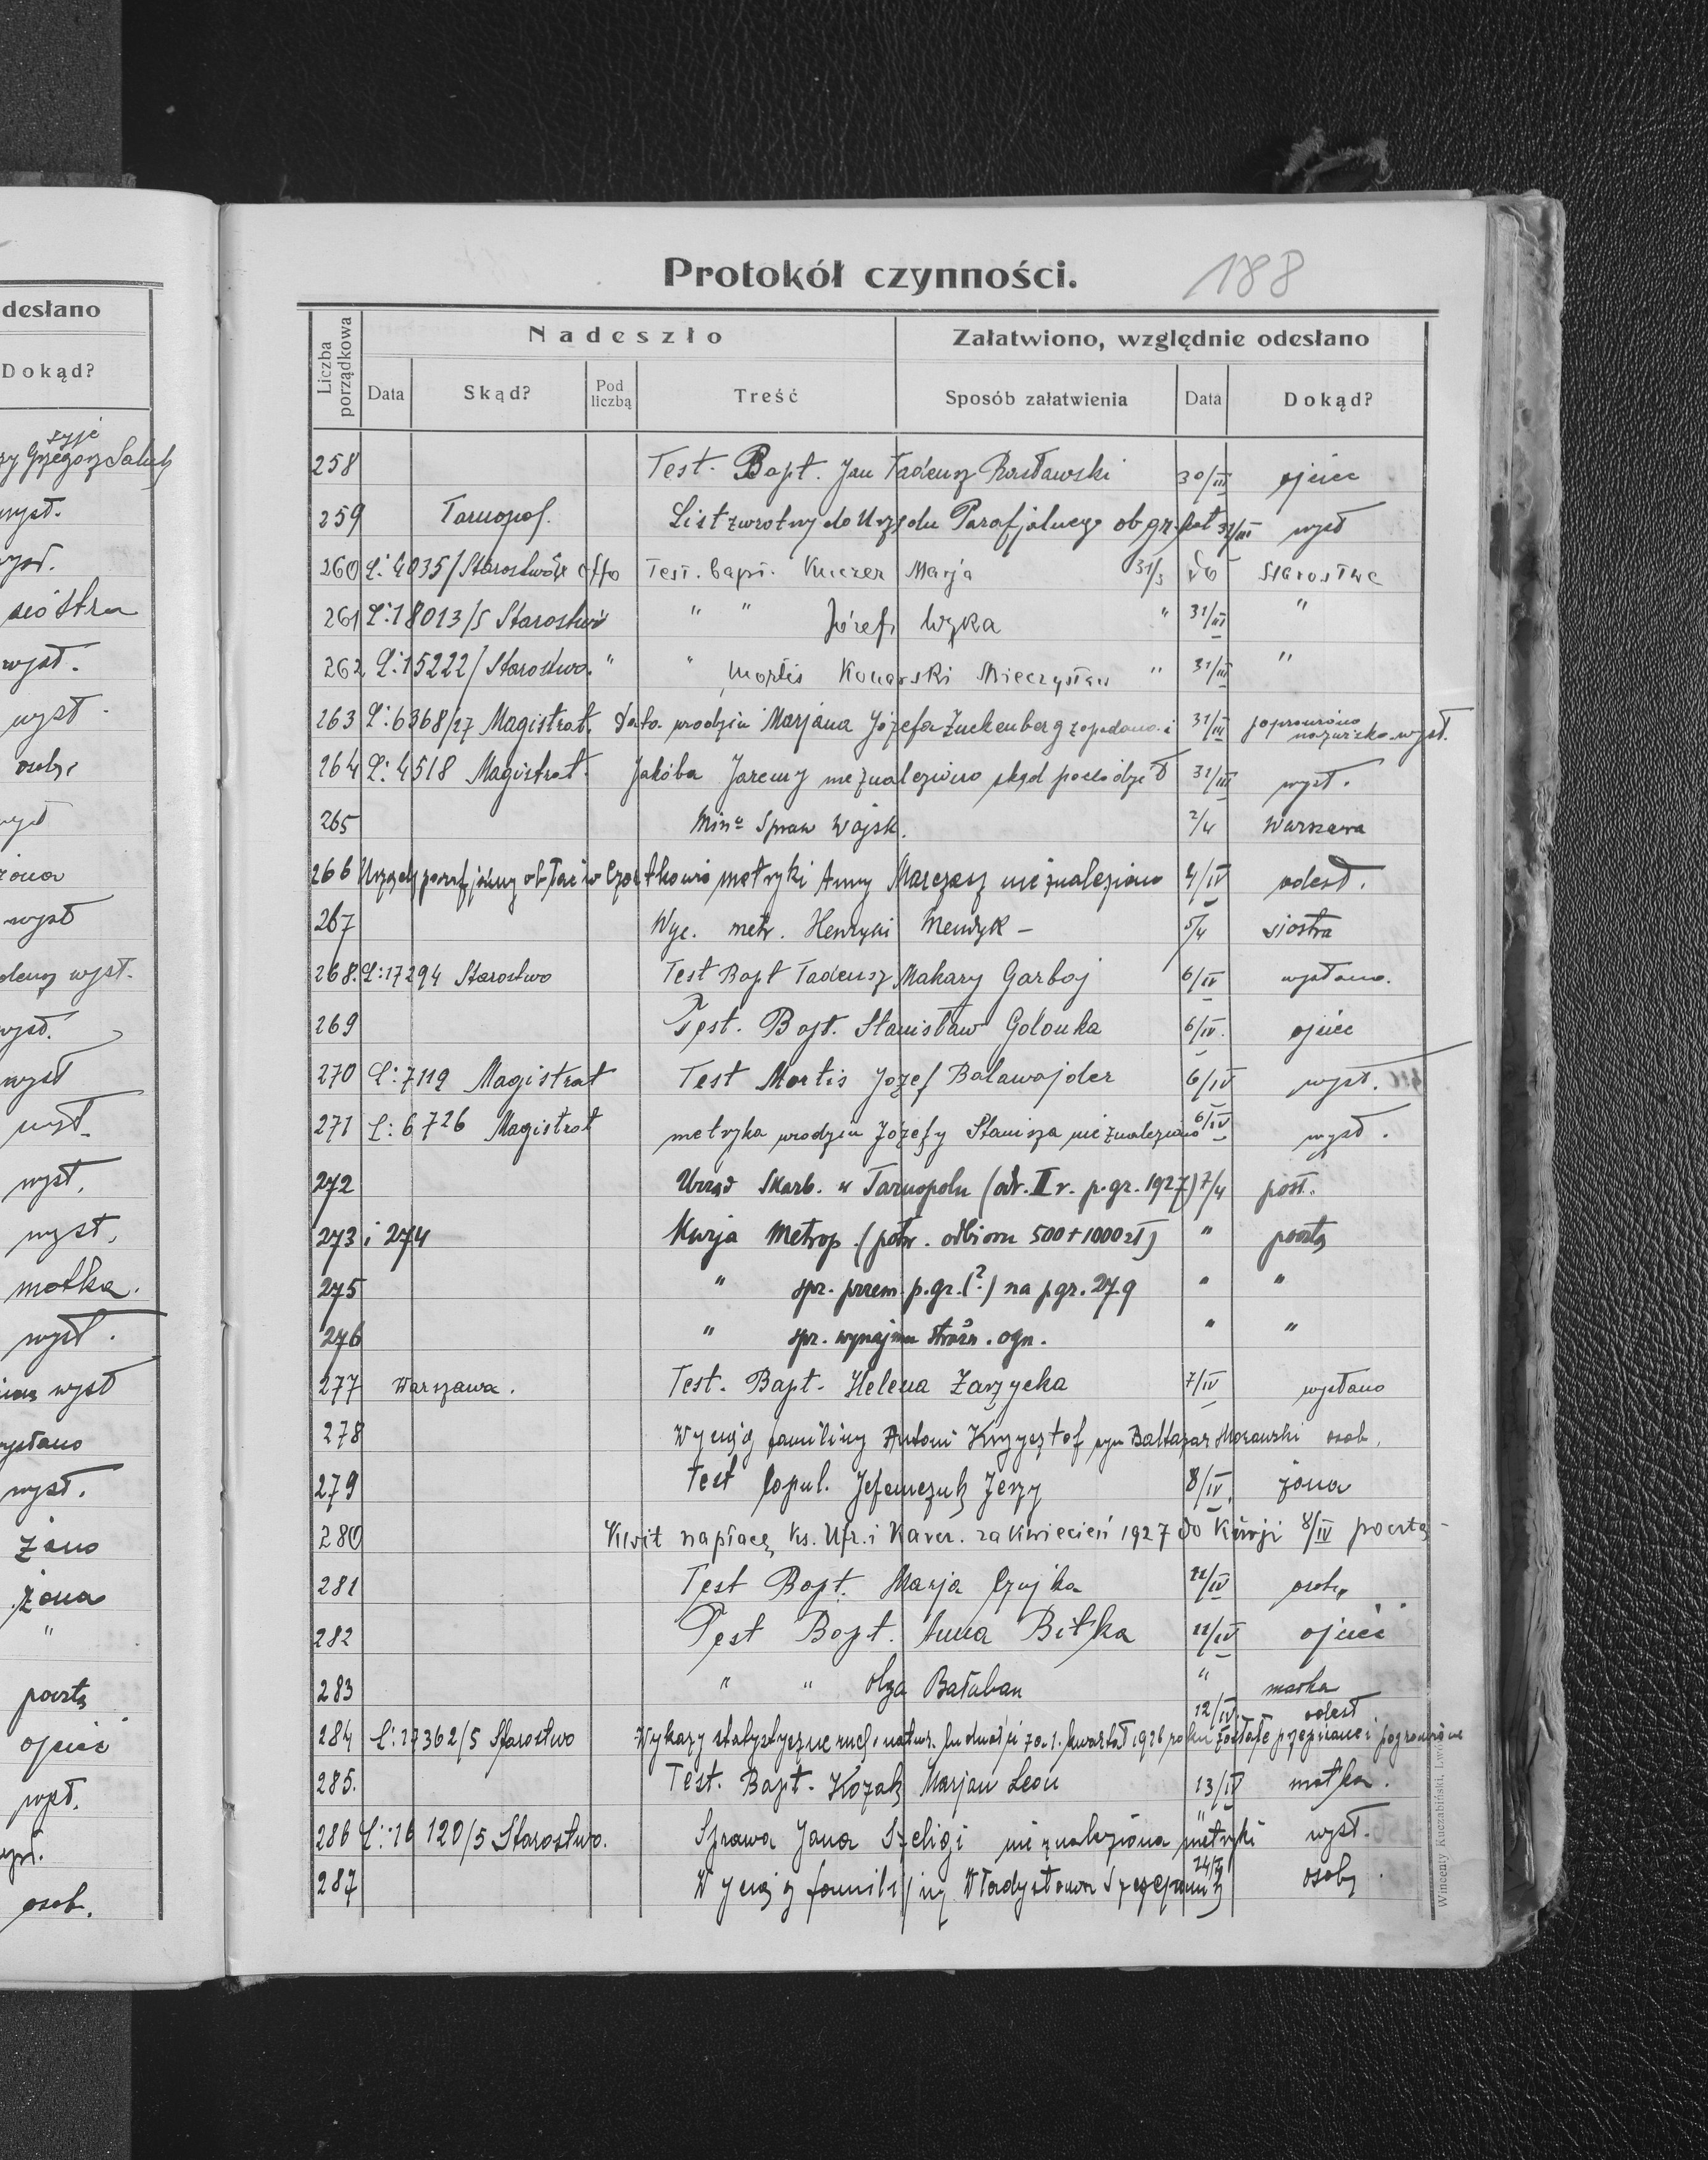 desłano
Dokąd?
syjé
Grzegorz
wyst.
siostra
wyst.
wyst.
wyst
wyst
wyst.
wyst
wyst.
wyst.
wyst.
matka.
wyst.
wyst
wyst.
żona
"
pocztą
ojciec
wyst.
osob.
Protokół czynności. 188
Liczba porządkowa
Nadeszło
Załatwiono, względnie odesłano
Data
Skąd?
Pod liczbą
Treść
Sposób załatwienia
Data
Dokąd?
258 Test. Bapt. Jan Tadeusz Rosławski 30/III ojciec
259 Tarnopol. List zwrotny do Urzędu Parafjalnego ob gr. kat 31/III wyst
260 L: 4035/Starostwo Test. bapt. Kuczer Marja 31/3 do Starostwa
261 L:18013/5 Starostwo " " Józef Wyka " 31/III "
262 L:15222/Starostwo. " " Mortis Konarski Mieczysław " 31/III "
263 L:6368/27 Magistrat. Data urodzin Marjana Józefa Zuckenberg zapodano i 31/III poprawiono nazwisko wyst.
264 L: 4518 Magistrat. Jakóba Jaremy nie znaleziono skąd pochodził 31/III wyst.
265 Min. Spraw Wojsk. 2/4 Warszawa
266 Urząd parafjalny ob łać w Czortkowie metryki Anny Marczesz nie znaleziono 4/IV odesł.
267 Wyc. metr. Henryki Mendyk – 5/4 siostra
268. L:17294 Starostwo Test Bapt Tadeusz Makary Garboj 6/IV wysłano.
269 Test. Bapt. Stanisław Golonka 6/IV. ojciec
270 L:7119 Magistrat Test Mortis Józef Balawajder 6/IV wyst.
271 L: 6726 Magistrat metryka urodzin Józefy Stanisza nie znaleziono 6/IV wyst.
272 Urząd Skarb. w Tarnopolu (odr. II r. p. gr. 1927) 7/4 poszt.
273 i 274 Kurja Metrop. (potw. odbioru 500+1000 zł) " pocztą
275 " spr. przem. p. gr. (?) na p gr. 279 " "
276 " spr. wynajmu straż. ogn. " "
277 Warszawa. Test. Bapt. Helena Zarzycka 7/IV wysłano
278 Wyciąg familijny Antoni Krzysztof syn Baltazar Morawski osob.
279 Test Copul. Jefemczuk Jerzy 8/IV. żona
280 Kwit na płacę ks. Ufr. i Kaver. za kwiecień 1927 do Kurji 8/IV pocztą –
281 Test Bapt. Marja Czujka 11/IV osob.
282 Test Bapt. Anna Bitka 11/IV ojciec
283 " " Olga Bałaban " matka
284 L:17362/5 Starostwo Wykazy statystyczne ruchu natur. ludności za 1. kwartał 1926 roku zostały przepisane i poprawione 12/IV. odesł
285. Test. Bapt. Kozak Marjan Leon 13/IV matka.
286 L:16120/5 Starostwo. Sprawa Jana Szeligi nie znaleziona metryki " wyst.
287 Wyciąg familijny Władysława 24/IV osoby
Wincenty Kuczabiński, Lwów